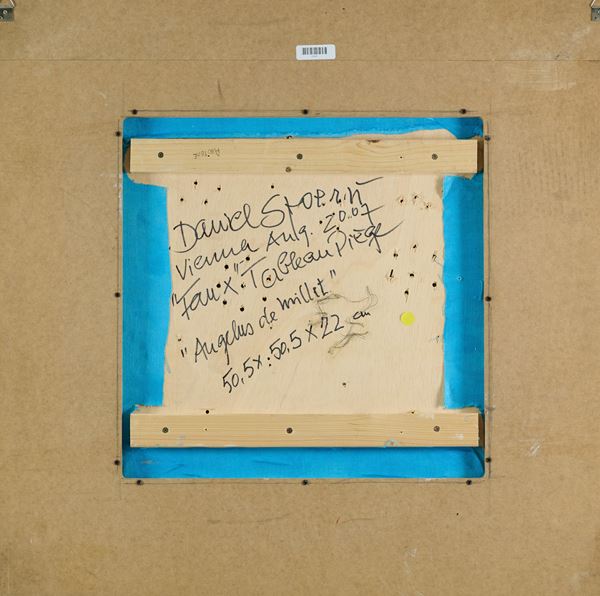 Daniel Spoerri
Vienna Aug. 2007
"Faux"-Tableau Piège
"Angelus de millet"
50,5x:50,5x22 cm